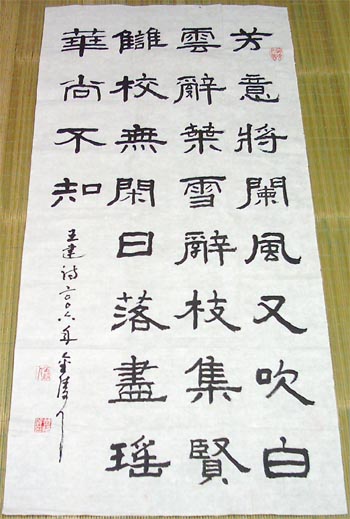 芳意將闌風又吹白
雲辭葉雪辭枝集賢
讎校無閑日落盡瑤
華尚不知
王建诗二〇〇六年金陵